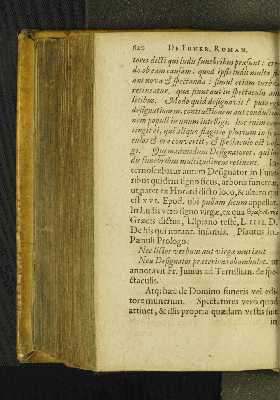 620 DE FUNER. ROMAN.
tores dicti qui ludis funebribus præsunt:
do ob eam causam, quod ipsis ludis multa
ant nova & spectanda: simul etiam turba
retinetur. quæ fiunt aut in spectaculis aut
litibus. Modo quid designavit? puto
designationem, contractionem aut conductio
nem populi in unum intelligi. hoc enim con
tingit ei, qui aliquod flagitium plurium in
culos & ora convertit, & spectaculo est
go. Quemadmodum Designatores, qui
du funebribus multitudinem retinent. In
ternoscebatur autem Designator in Fune
ribus quidem signo ficus, arboris funereæ,
ut patet ex Horatii dicto loco, & altero qui
est XVII. Epod. ubi pullam ficum appellat.
In Ludis vero signo virgæ, ex qua
Græcis dictus, Ulpiano teste, L.
De his qui notant. infamia. Plautus in
Pœnuli Prologo.
Nec lictor verbum aut virgæ mutiant
Neu Designator præter os obambulet. ut
annotavit Fr. Junius ad Tertullian. de spe-
ctaculis.
Atq; hæc de Domino funeris vel edi-
tore munerum. Spectatores vero quod
attinet, & illis propria quædam vestis fuit
in